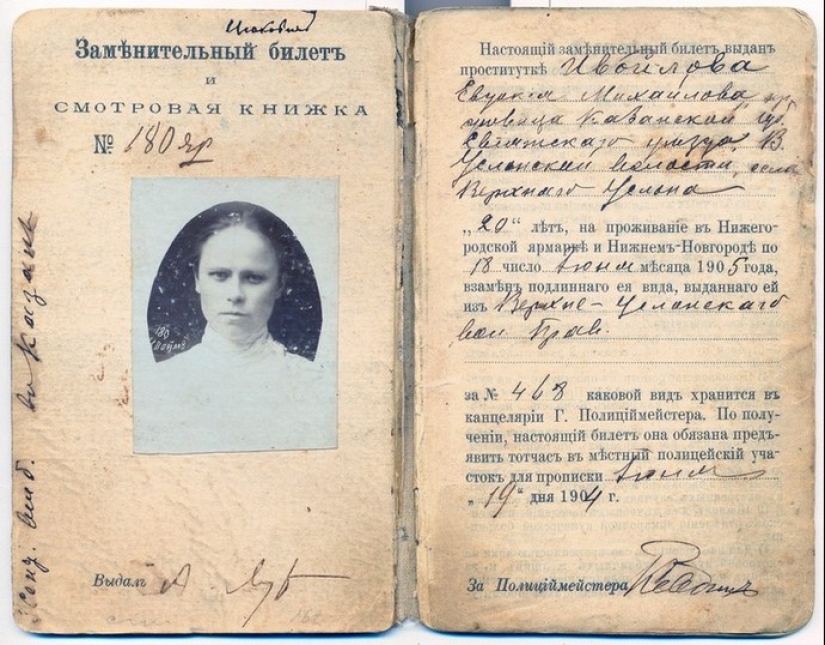 Замѣнительный билетъ
и
СМОТРОВАЯ КНИЖКА
№ 180 яр
180
Выдалъ
въ Казань
Настоящій замѣнительный билетъ выданъ
проституткѣ Ивойлова
Михайлова
Казанской губ.
уѣзда, В.
Услонской волости, села
Верхняго Услона
„20“ лѣтъ, на проживаніе въ Нижего-
родской ярмаркѣ и Нижнемъ-Новгородѣ по
18 число Іюня мѣсяца 1905 года,
взамѣнъ подлиннаго ея вида, выданнаго ей
изъ Верхне-Услонскаго
вол. Прав.
за № 468 каковой видъ хранится въ
канцеляріи Г. Полиціймейстера. По полу-
ченіи, настоящій билетъ она обязана предъ-
явить тотчасъ въ мѣстный полицейскій уча-
стокъ для прописки Іюня
„19“ дня 1904 г.
За Полиціймейстера